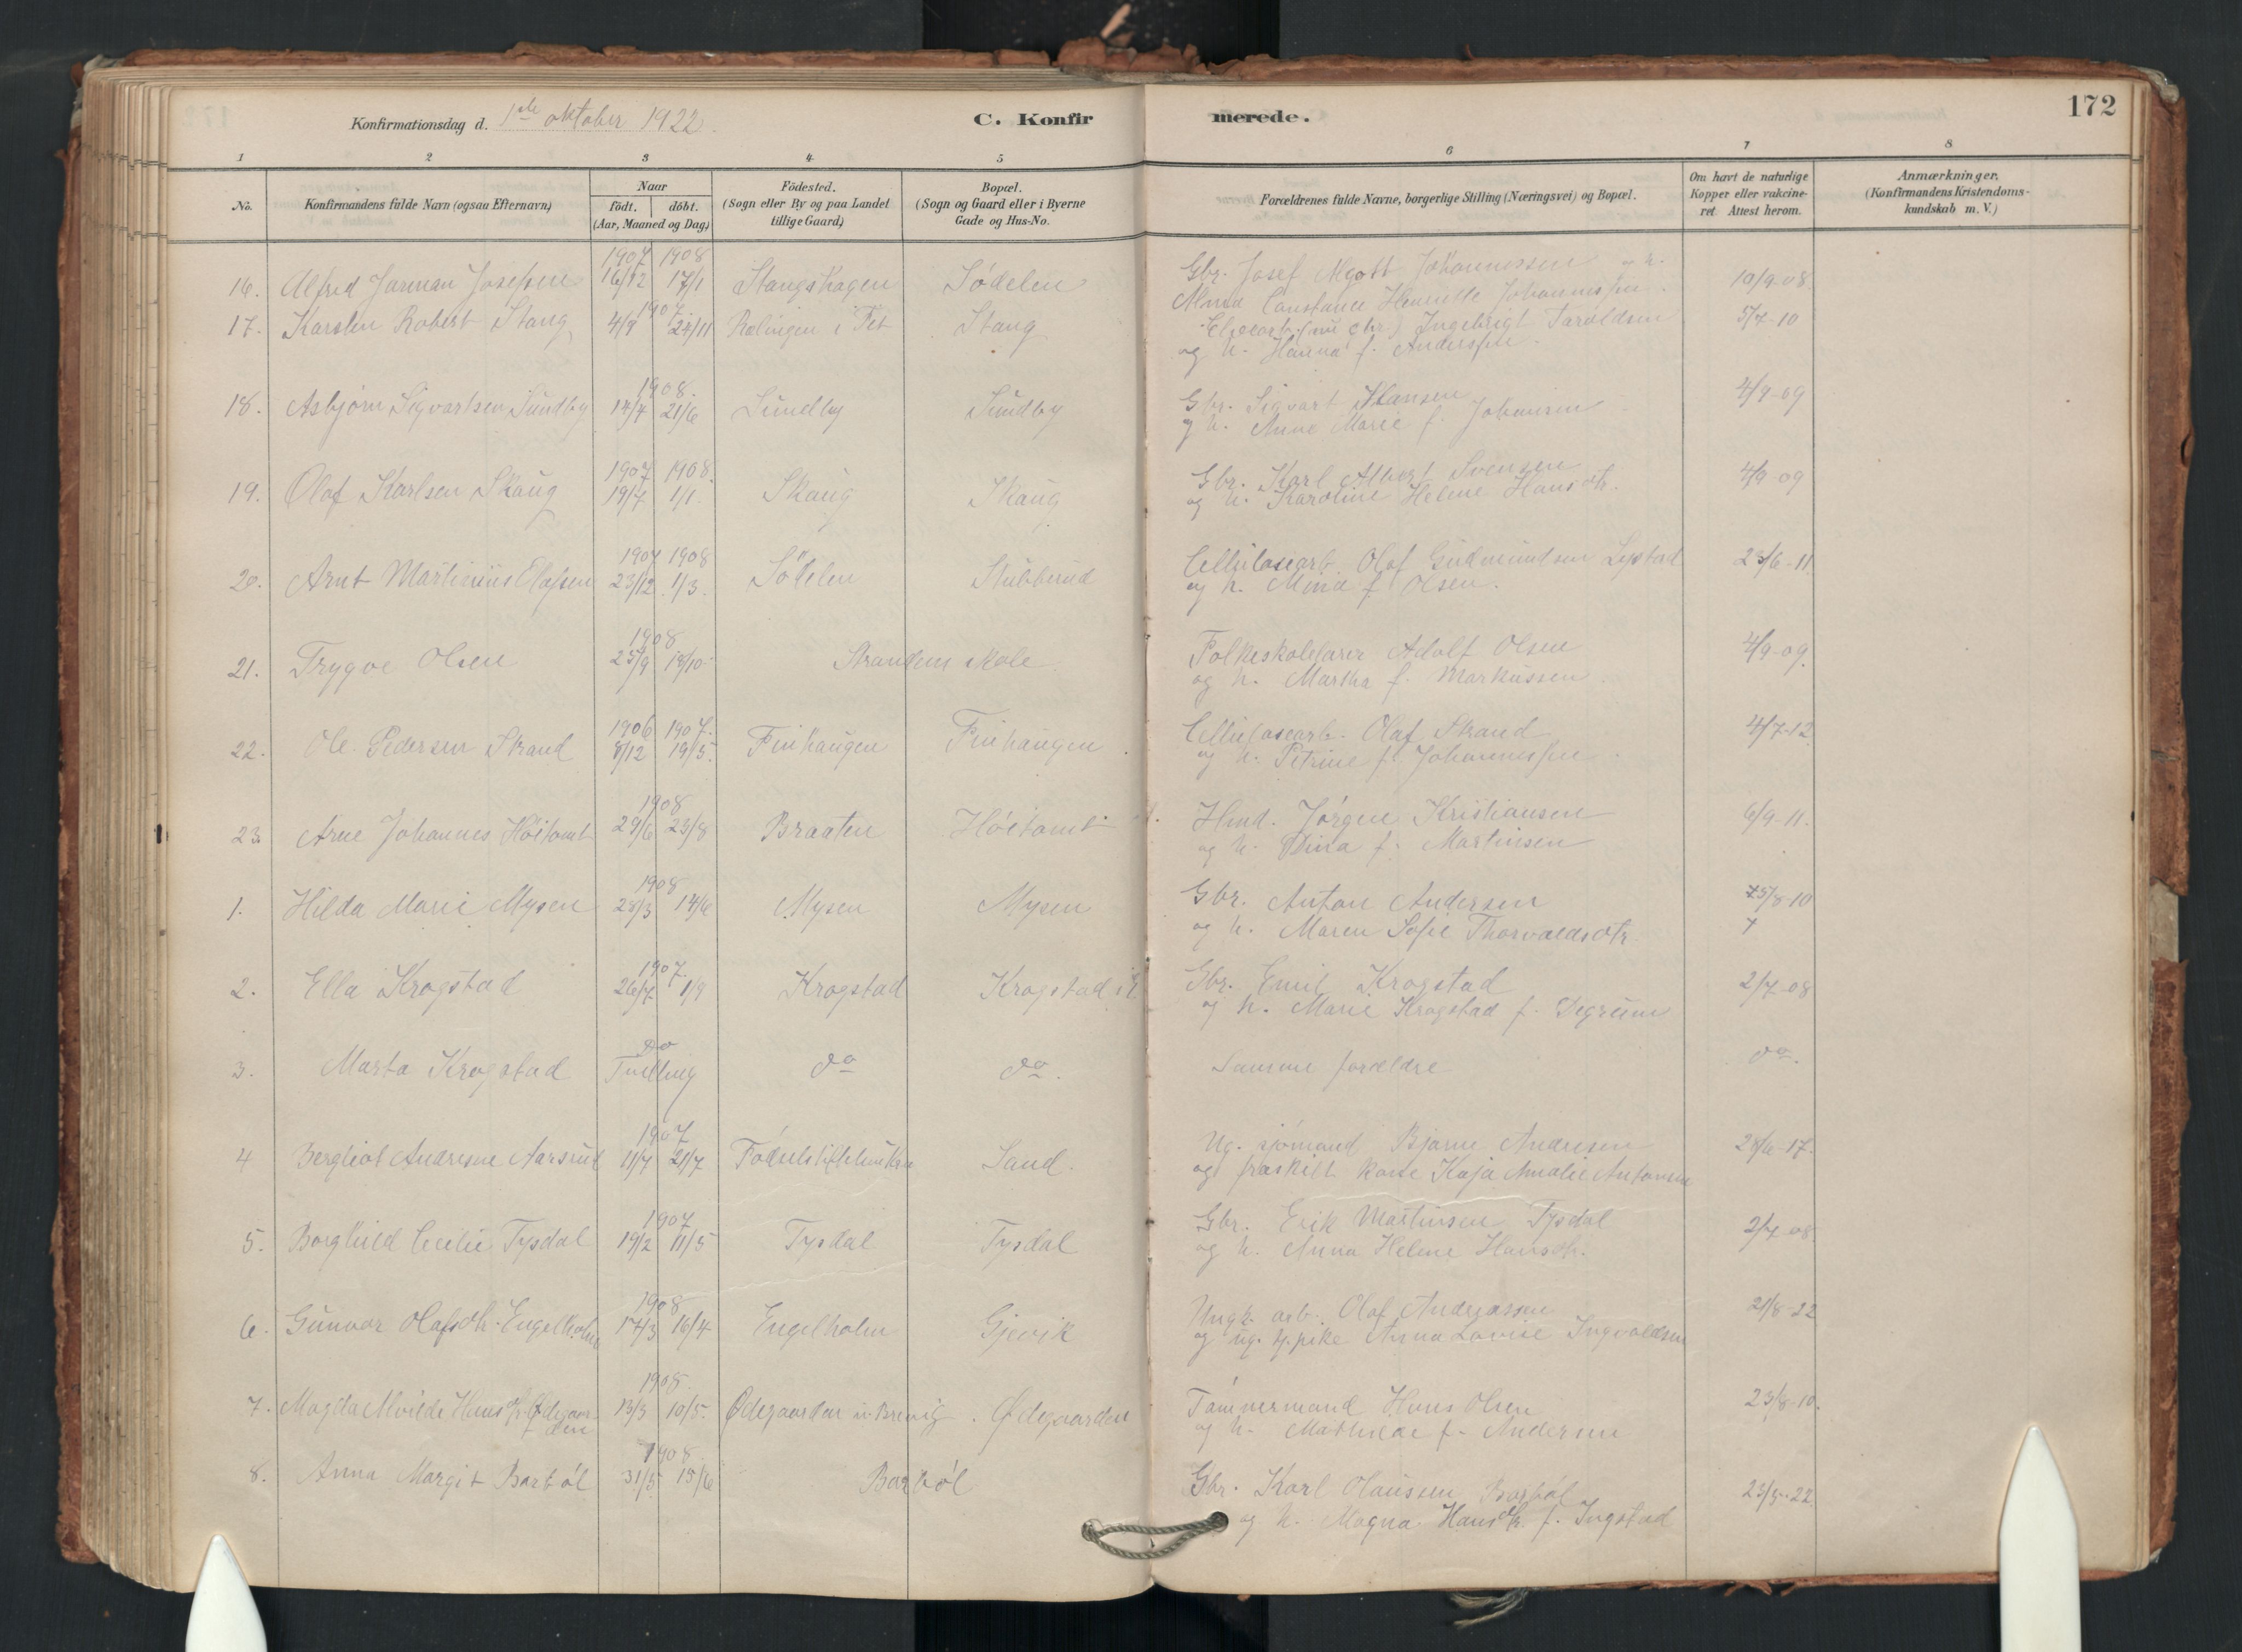 172
Konfirmationsdag d. 1ste oktober 1922.
C. Konfirmerede.
1 2 3 4 5 6 7 8
No.
Konfirmandens fulde Navn (ogsaa Efternavn)
Naar
födt. döbt.
(Aar, Maaned og Dag)
Födested.
(Sogn eller By og paa Landet
tillige Gaard)
Bopæl.
(Sogn og Gaard eller i Byerne
Gade og Hus-No.
Forældrenes fulde Navne, borgerlige Stilling (Næringsvei) og Bopæl.
Om havt de naturlige
Kopper eller vakcine-
ret Attest herom.
Anmærkninger.
(Konfirmandens Kristendoms-
kundskab m. V.)
1907 1908
16. Alfred Josefsen 16/12 17/1 Stangskogen Södelen Gbr. Josef Johannessen 10/9-08
Constance Henriette Johannessen
1907
17. Karsten Robert Stang 4/9 24/11 Rælingen i Fet Stang (nu gbr.) Ingebrigt Taraldsen 5/7-10
og h. Hanna f. Anderssen
1908.
18. Asbjørn Sigvartsen Sundby 14/4 21/6 Sundby Sundby Gbr. Sigvart Hansen 4/9-09
og h. Anne Marie f. Johansen
1907 1908.
19. Olaf Karlsen Skaug 19/7 1/1. Skaug Skaug Gbr. Karl Albert Svensen 4/9 09
og h. Karoline Helene Hansdtr.
1907 1908
20. Arnt Martinius Olafsen 23/12 1/3. Södelen Stubberud Cellulosearb. Olaf Gudmundsen 23/6-11
og h. Mina f. Olsen.
1908
21. Trygve Olsen 25/9 18/10 Strandens skole Folkeskolelærer Adolf Olsen 4/9-09.
og h. Martha f. Markussen.
1906 1907.
22. Ole Pedersen Strand 8/12 19/5. Finhaugen Finhaugen Cellulosearb. Olaf Strand 4/7-12
og h. Petrine f. Johannessen
1908
23 Arne Johannes Höitomt 29/6 23/8 Braaten Höitomt Hmd. Jørgen Kristiansen 6/9-11.
og h. Dina f. Martinsen
1908
1. Hilda Marie Mysen 28/3 14/6 Mysen Mysen Gbr. Anton Andersen 5/8-10
og h. Maren Sofie Thorvaldsdtr.
1907
2. Ella Krogstad 26/7 1/9 Krogstad Krogstad i E Gbr. Emil Krogstad 2/7-08
og h. Marie Krogstad f. Degrum
3. Marta Krogstad do Tvilling do do. Samme forældre do.
1907
4 Bergliot Andresne Aarsrud 11/4 21/7 Födselsstiftelsen Kra Sand. Ug. sjömand Bjarne Andresen 28/6-17.
og fraskilt kone Kaja Amalie Antonsen
1907
5. Borghild Cecilie Tysdal 19/2 11/5 Tysdal Tysdal Gbr. Erik Martinsen Tysdal 2/7 08.
og h. Anna Helene Hansdtr.
1908
6. Gunvor Olafsdtr. Engelholm 17/3 16/4 Engelholm Gjevik Ungk. arb. Olaf Andreassen 21/8-22
og ug. tj.pike Anna Lovise Ingvaldsen
1908
7. Magda Alvilde Hansdtr. Ødegaar- 13/3 10/5. Ødegaarden Ødegaarden Tömmermand Hans Olsen 23/8-10.
den
og h. Mathilde f. Andersen
1908.
8. Anna Margit Barböl 31/5 15/6 Barböl Gbr. Karl Olaussen Barböl 23/5-22.
og h. Magna Hansdtr. f. Ingstad